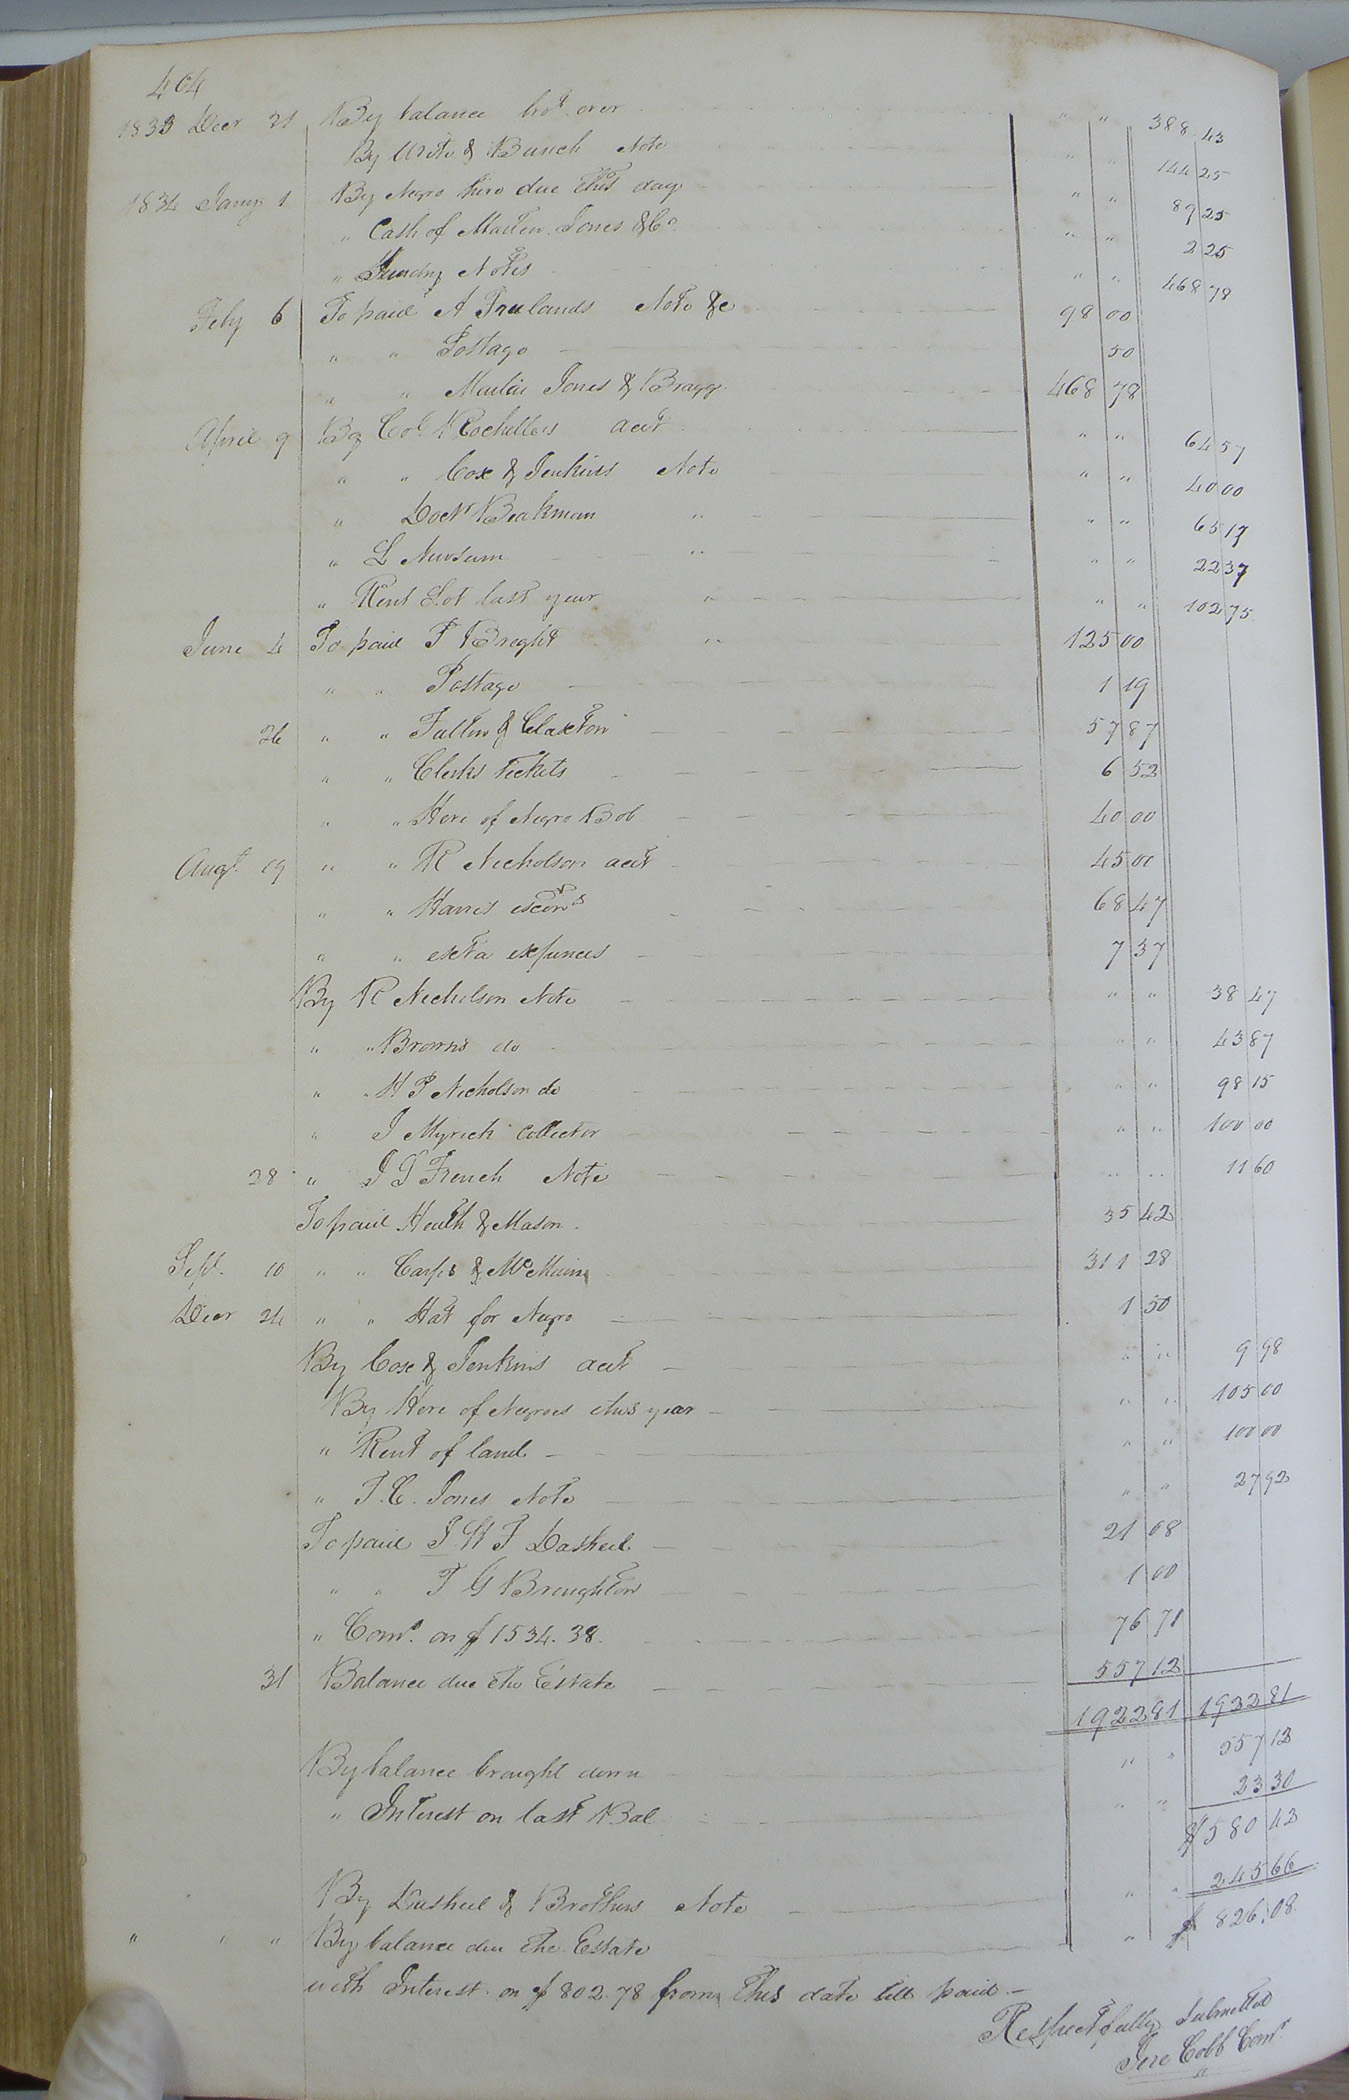 404
1833 Decr 21 By balance bro.t over " " 388 43
By Urite & Bunch Note " " 144 25
1834 Jany 1 By Negro hire due this day " " 89 25
" Cash of Martin Jones & Co. " " 2 25
" Sundry Notes " " 468 78
Feby 6 To paid A Frulands Note &c 98 00
" " Postage 50
" " Martin Jones & Bragg 468 78
April 9 By Col. Rochelles acct " " 64 57
" " Cox & Jenkins Note " " 40 00
" Doctr Beakman " " " 65 17
" L Newsum " " " 22 37
" Rent Lot last year " " " 102 75
June 4 To paid T Breght " 125 00
" " Postage 1 19
26 " " Fulton & Claxton 57 87
" " Clerks Tickets 6 52
" " Hire of Negro Bob 40 00
Augt. 19 " " R Nicholson acct 45 00
" " Harris excrs 68 47
" " extra expences 7 37
By R Nicholson Note " " 38 47
" " Browns do " " 43 87
" " H P Nicholson do " " 98 15
" J Myrick Collector " " 100 00
28 " J L French Note " " 11 60
To paid Heath & Mason 35 42
Sept. 10 " " Carps & McMinn 311 28
Decr 24 " " Hat for Negro 1 50
By Cox & Jenkins acct " " 9 98
By Hire of Negroes this year " " 105 00
" Rent of land " " 100 00
" T. C. Jones Note " " 27 92
To paid J W F Dashiel 21 08
" " T G Broughton 1 00
" Coms. on $1534.38. 76 71
31 Balance due the Estate 557 12
1922 81 1922 81
By balance brought down " " 557 12
" Interest on last Bal " " 23 30
$580 42
By Dashiel & Brothers Note " " 245 66
" " " By balance due the Estate " $826.08
with Interest on $802.78 from this date till paid
Respectfully Submitted
Jere Cobb Comr.